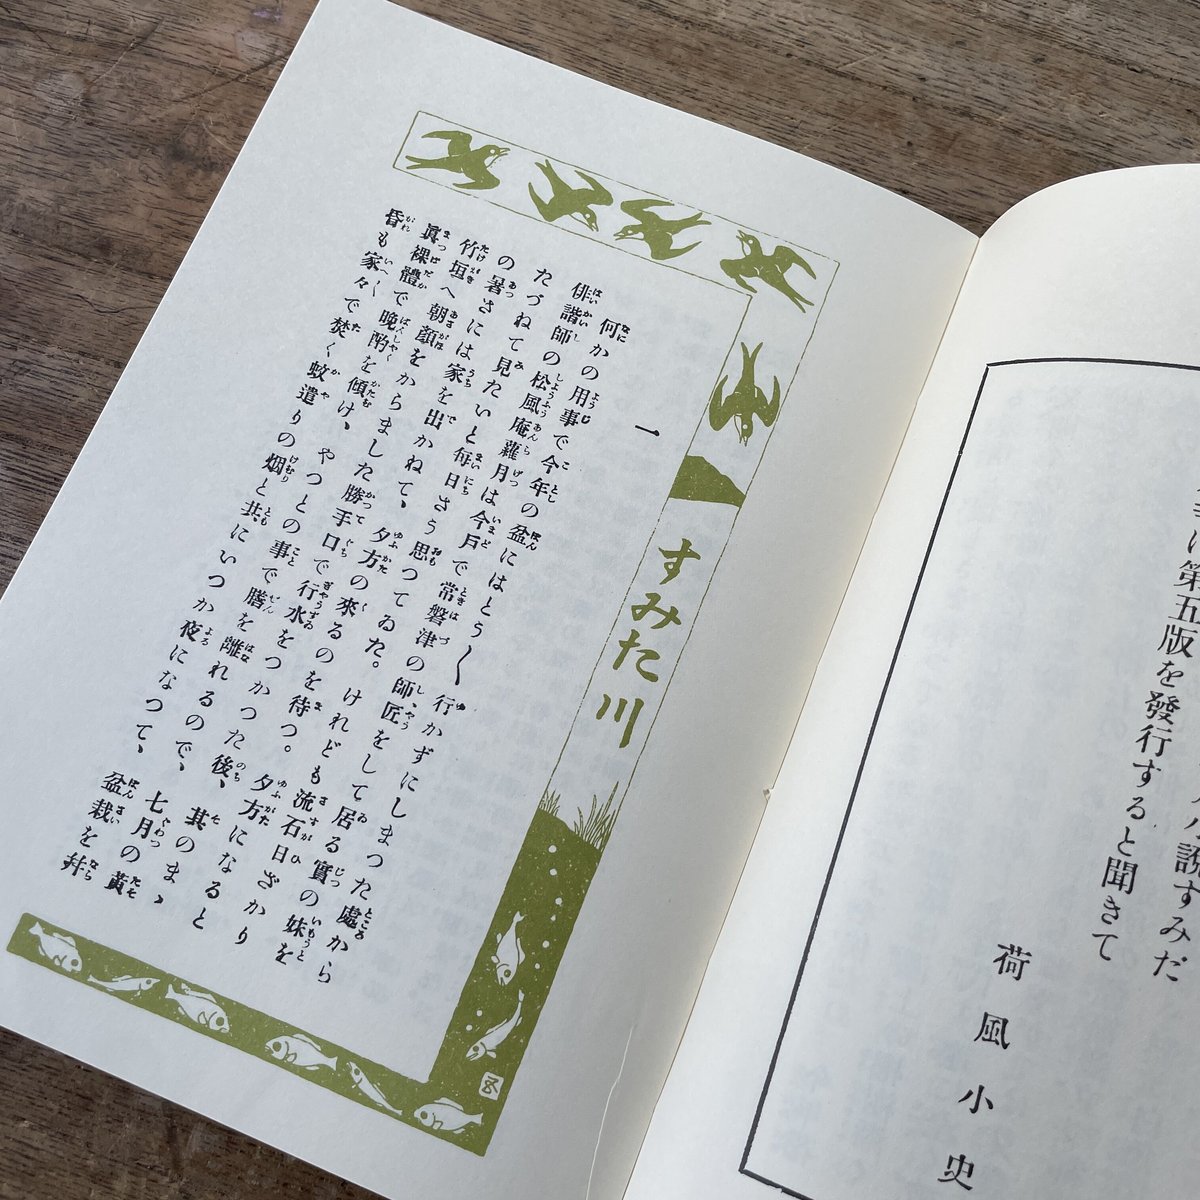 說すみだ
第五版を發行すると聞きて
荷風小史
すみた川
一
何かの用事で今年の盆にはとう〱行かずにしまつた處から
俳諧師の松風庵蘿月は今戶で常磐津の師匠をして居る實の妹を
たづねて見たいと每日さう思つてゐた。けれども流石日ざかり
の暑さには家を出かねて、夕方の來るのを待つ。夕方になると
竹垣へ朝顏をからました勝手口で行水をつかつた後、其のまゝ
眞裸體で晚酌を傾け、やつとの事で膳を離れるので、七月の黃
昏も家々で焚く蚊遣りの烟と共にいつか夜になつて、盆栽を幷